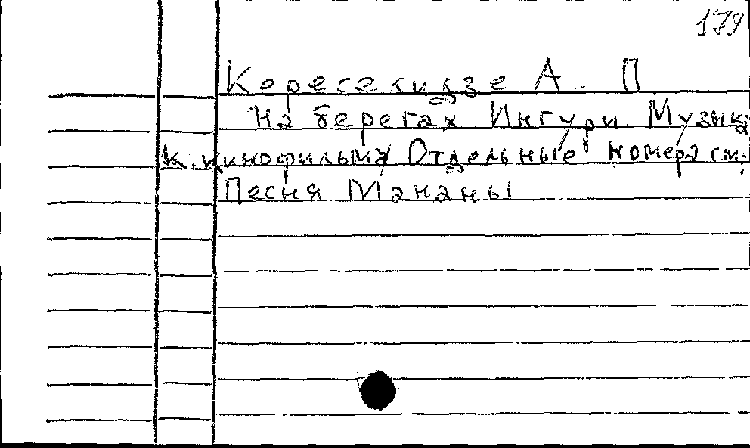 179
Кереселидзе А. П
На берегах Ингури Музыка
к кинофильму Отдельные номера см.
Песня Мананы